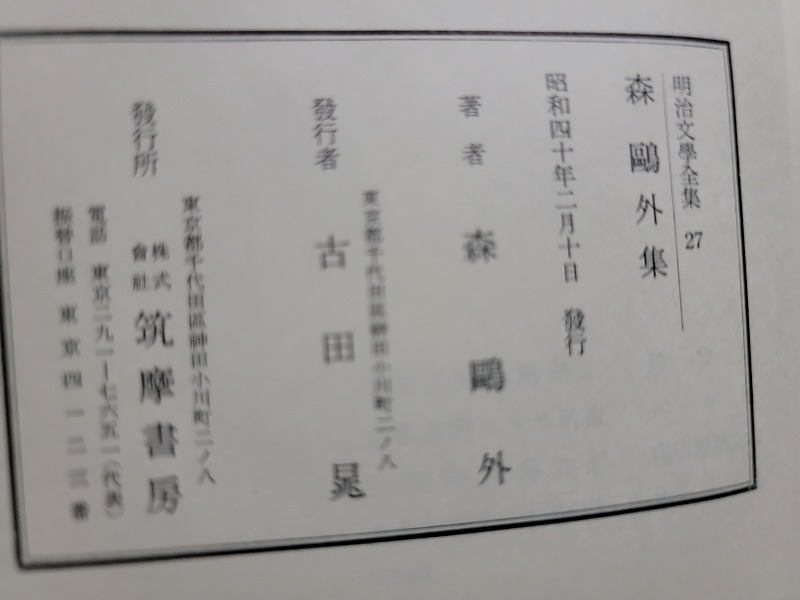 明治文學全集 27
森鷗外集
昭和四十年二月十日 發行
著者 森鷗外
東京都千代田區神田小川町二ノ八
發行者 古田晁
東京都千代田區神田小川町二ノ八
發行所 株式會社 筑摩書房
電話 東京二九一―七六五一(代表)
振替口座 東京四一二三番